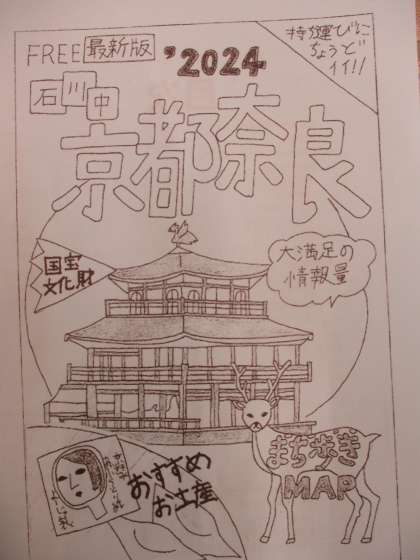 FREE 最新版
'2024
持ち運びに
ちょうど
イイ!!
石川中
京都奈良
国宝
文化財
大満足の
情報量
おすすめ
お土産
まち歩き
MAP